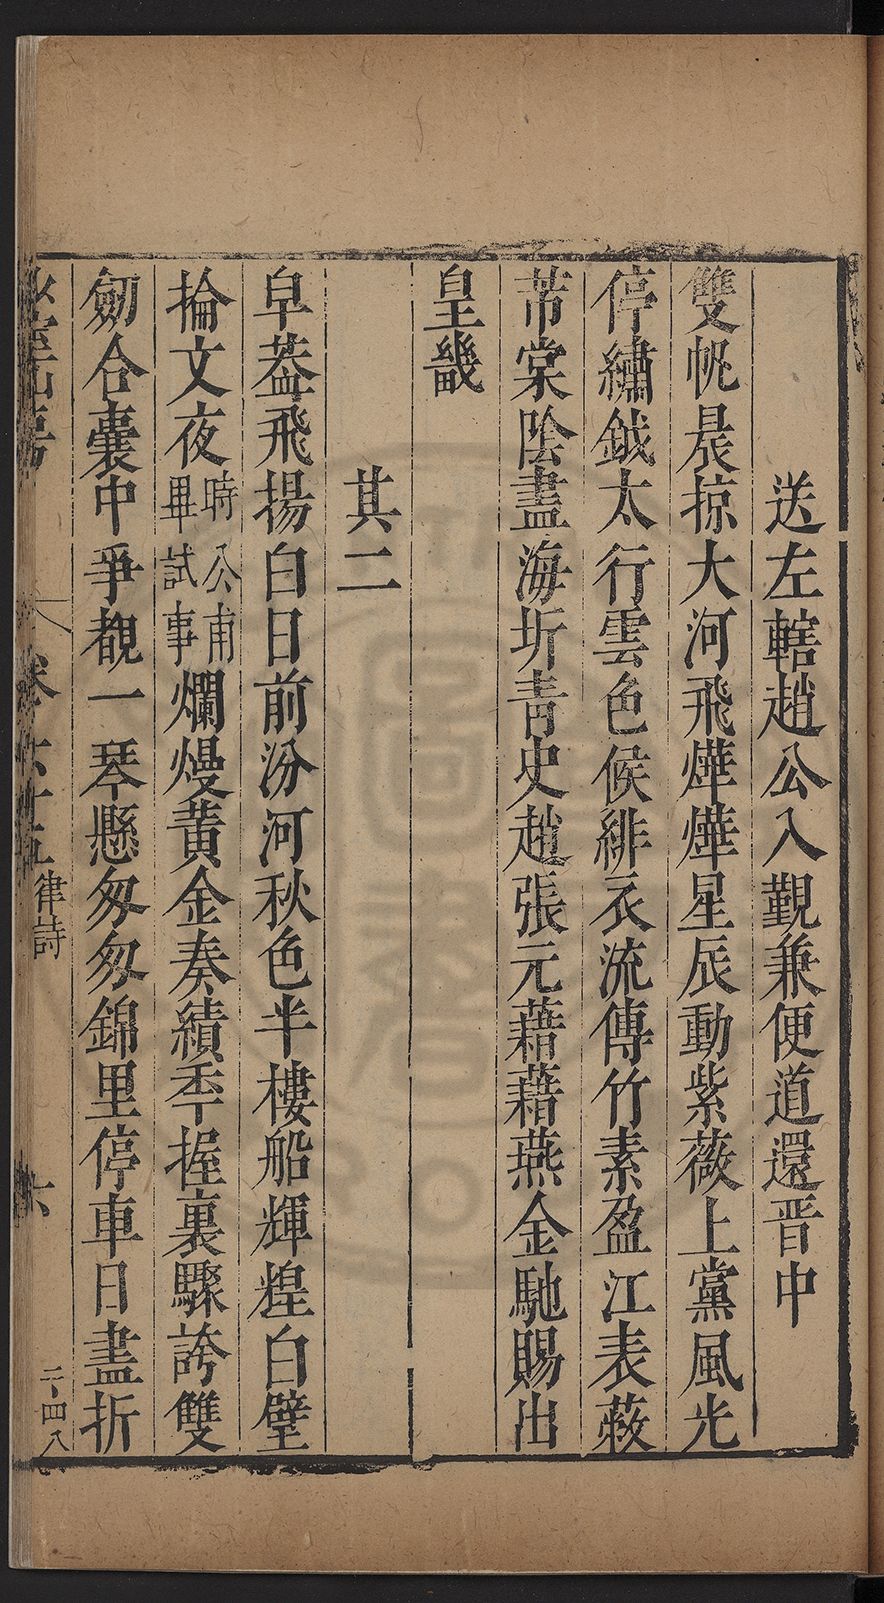 送左轄趙公入覲兼便道還晋中
雙帆晨掠大河飛燁燁星辰動紫薇上黨風光
停繡鉞太行雲色候緋衣流傳竹素盈江表蔽
芾棠陰盡海圻青史趙張元藉藉燕金馳賜出
皇畿
其二
皁葢飛揚白日前汾河秋色半樓船輝煌白璧
掄文夜時公甫畢試事爛熳黃金奏績秊握裏驟誇雙
劒合囊中爭覩一琴懸匆匆錦里停車日盡折
卷六十五 律詩 六